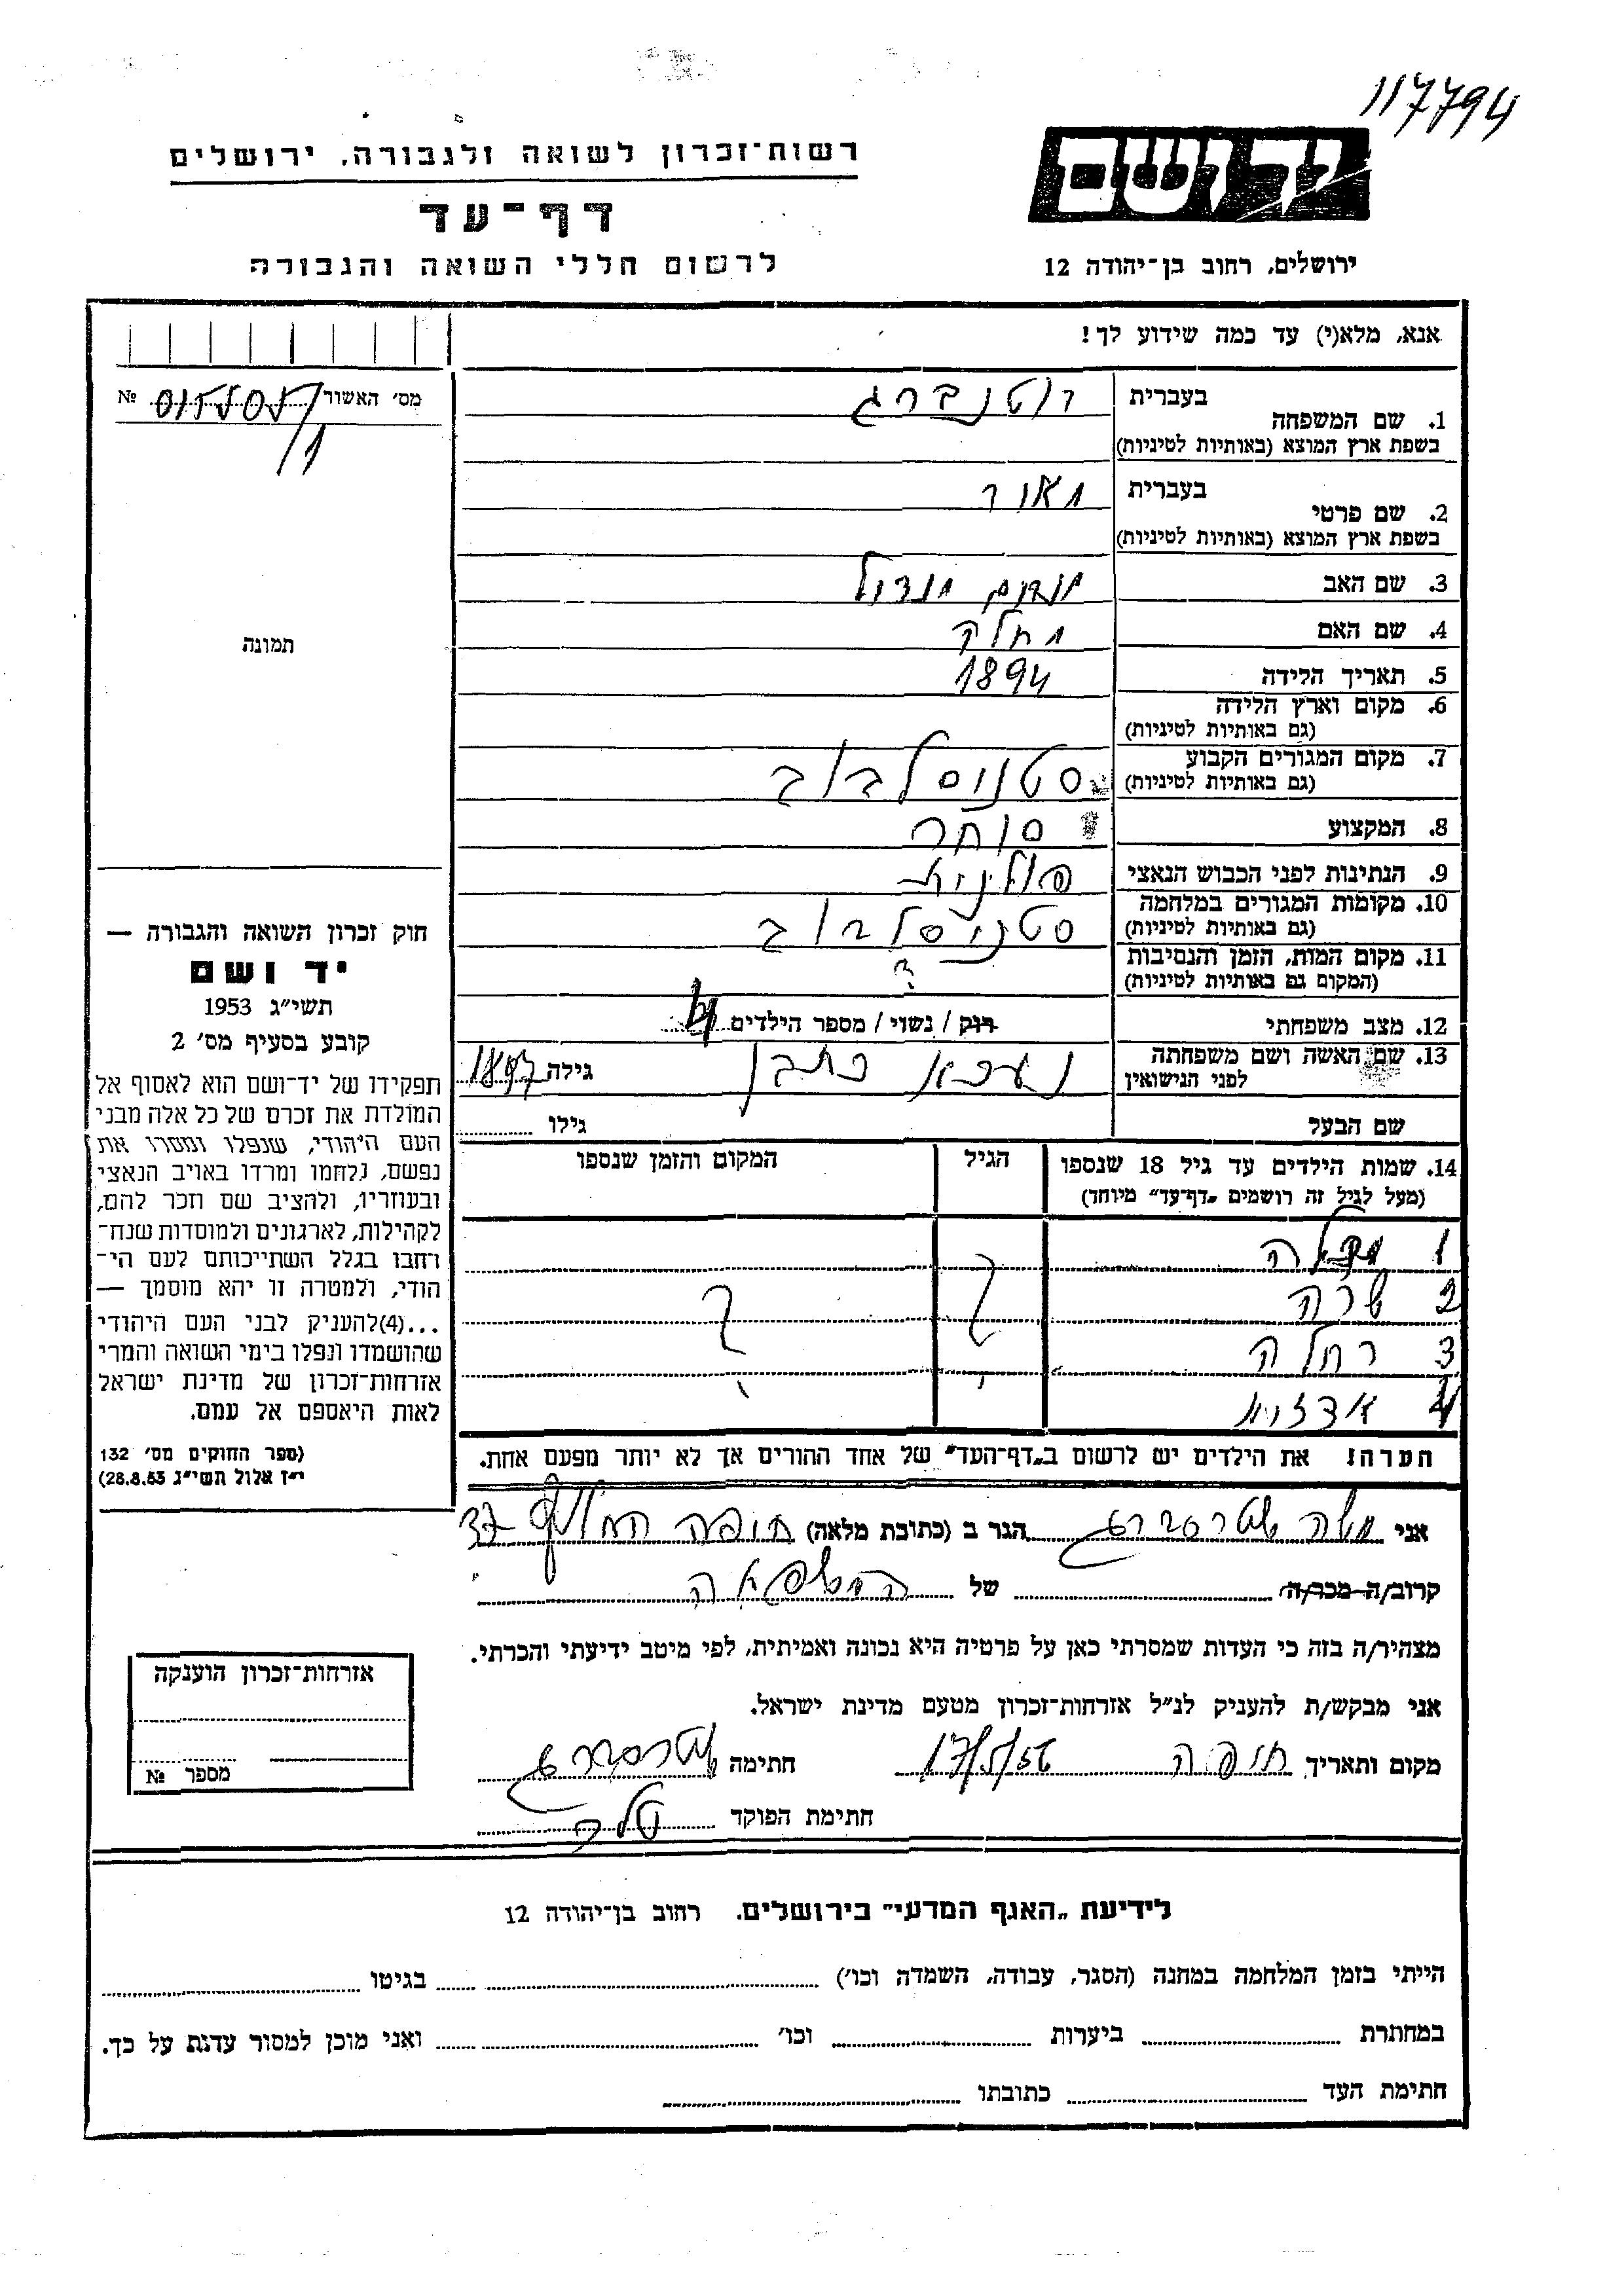 117794
רשות־זכרון לשואה ולגבורה, ירושלים
דף־עד
לרשום חללי השואה והגבורה
יד ושם
ירושלים, רחוב בן־יהודה 12
אנא, מלא(י) עד כמה שידוע לך!
מס׳ האשור №
1. שם המשפחה בעברית רוטנברג
בשפת ארץ המוצא (באותיות לטיניות)
2. שם פרטי בעברית מאיר
בשפת ארץ המוצא (באותיות לטיניות)
3. שם האב
4. שם האם
5. תאריך הלידה 1894
6. מקום וארץ הלידה
(גם באותיות לטיניות)
7. מקום המגורים הקבוע סטניסלבוב
(גם באותיות לטיניות)
8. המקצוע סוחר
9. הנתינות לפני הכבוש הנאצי פולנית
10. מקומות המגורים במלחמה סטניסלבוב
(גם באותיות לטיניות)
11. מקום המות, הזמן והנסיבות ?
(המקום גם באותיות לטיניות)
12. מצב משפחתי רוק / נשוי / מספר הילדים 4
13. שם האשה ושם משפחתה
לפני הנישואין גילה 1897
שם הבעל גילו
14. שמות הילדים עד גיל 18 שנספו הגיל המקום והזמן שנספו
(מעל לגיל זה רושמים „דף־עד״ מיוחד)
1
2 שרה ? ?
3 רחלה
4
הערה! את הילדים יש לרשום ב„דף־העד״ של אחד ההורים אך לא יותר מפעם אחת.
תמונה
חוק זכרון השואה והגבורה —
יד ושם
תשי״ג 1953
קובע בסעיף מס׳ 2
תפקידו של יד־ושם הוא לאסוף אל
המולדת את זכרם של כל אלה מבני
העם היהודי, שנפלו ומסרו את
נפשם, נלחמו ומרדו באויב הנאצי
ובעוזריו, ולהציב שם וזכר להם,
לקהילות, לארגונים ולמוסדות שנח־
רחבו בגלל השתייכותם לעם הי־
הודי, ולמטרה זו יהא מוסמך —
...(4)להעניק לבני העם היהודי
שהושמדו ונפלו בימי השואה והמרי
אזרחות־זכרון של מדינת ישראל
לאות היאספם אל עמם.
(ספר החוקים מס׳ 132
י״ז אלול תשי״ג 28.8.53)
אני משה שטרסברג הגר ב (כתובת מלאה) חיפה החלוץ 37
קרוב/ה מכר/ה של
מצהיר/ה בזה כי העדות שמסרתי כאן על פרטיה היא נכונה ואמיתית, לפי מיטב ידיעתי והכרתי.
אני מבקש/ת להעניק לנ״ל אזרחות־זכרון מטעם מדינת ישראל.
מקום ותאריך חיפה 17/5/56 חתימה שטרסברג
חתימת הפוקד
אזרחות־זכרון הוענקה
מספר №
לידיעת „האגף המדעי״ בירושלים. רחוב בן־יהודה 12
הייתי בזמן המלחמה במחנה (הסגר, עבודה, השמדה וכו׳) בגיטו
במחתרת ביערות וכו׳ ואני מוכן למסור עדות על כך.
חתימת העד כתובתו